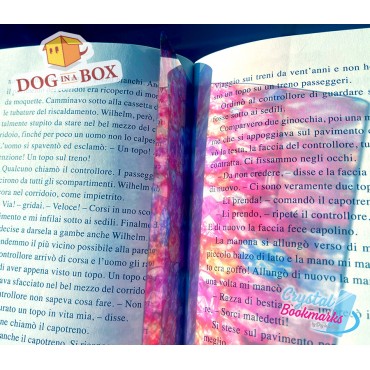 DOG IN A BOX
ranchi. And
corridoio era ricoperto di mo
da moquette. Camminavo sotto alla cassetta
le tubature del riscaldamento. Wilhelm, però,
talmente stupido da stare nel bel mezzo del co
ridoio, finché per poco un uomo non lo calpes
L'uomo si spaventò ed esclamò: – Un topo!
enzione! Un topo sul treno!
Qualcuno chiamò il controllore. I passegge
cirono da tutti gli scompartimenti. Wilhelm
ancora nel corridoio, come impietrito.
– Via! – gridai. – Veloce! – Corsi in uno sco
mento e mi infilai sotto ai sedili. Finalme
decise a darsela a gambe anche Wilhelm
ndemmo il più vicino possibile alla paret
ontrollore arrivò di corsa e l'uomo gli r
di aver appena visto un topo. Un topo da
va sfacciato nel bel mezzo del corridoio
controllore non sapeva cosa fare. – Non
urato un topo in vita mia, – disse.
– chiamò il capotreno.
mente il capotreno.
viaggio sui treni da vent'anni e non ho
to un topo su un treno passeggeri.
Ordinò al controllore di guardare s
Comparvero due ginocchia, poi una
che si appoggiava sul pavimento
la testa, la faccia del controllore, tut
contratta. Ci fissammo negli occhi.
– Da non credere, – disse e la faccia
– Ci sono veramente due top
– Li prenda! – comandò il capotren
– Li prendo, – ripeté il controllore.
E di nuovo la faccia fece capolino.
La manona si allungò verso di m
piccolo balzo di lato e la mano mi
lo era goffo! Allungò di nuovo la ma
una volta mi mancò
– Razza di bestia
– Sorci maledetti!
Si stese sul pavimento
meglio.
Crystal
Bookmarks